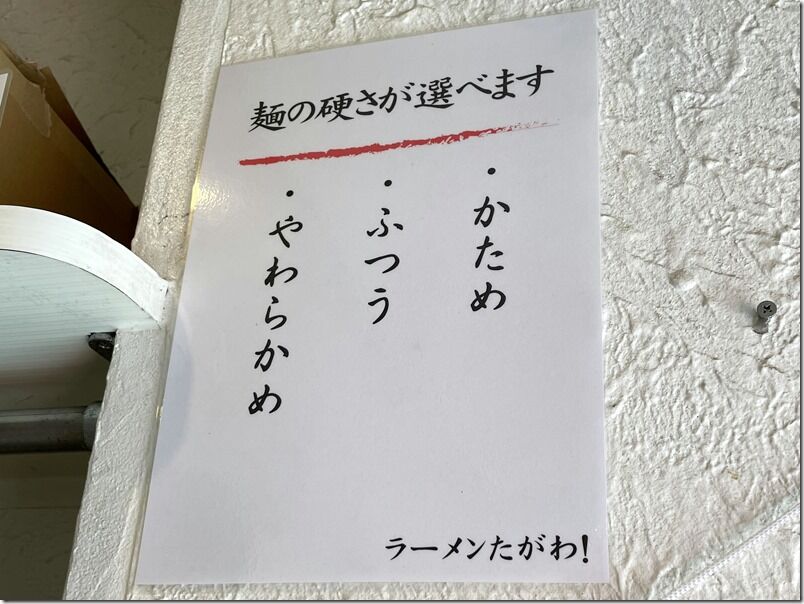 麺の硬さが選べます
・かため
・ふつう
・やわらかめ
ラーメンたがわ!